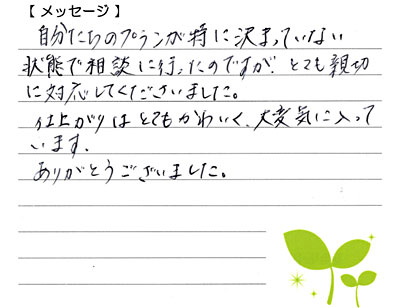 【 メッセージ 】
自分たちのプランが特に決まっていない
状態で相談に行ったのですが、とても親切
に対応してくださいました。
仕上がりはとてもかわいく、大変気に入って
います。
ありがとうございました。